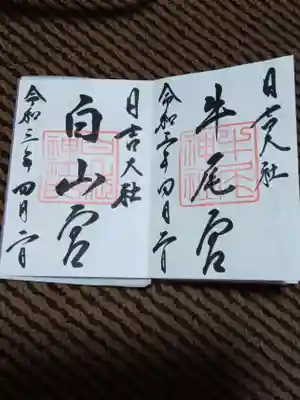 日吉大社
牛尾宮
令和三年四月二日
日吉大社
白山宮
令和三年四月二日